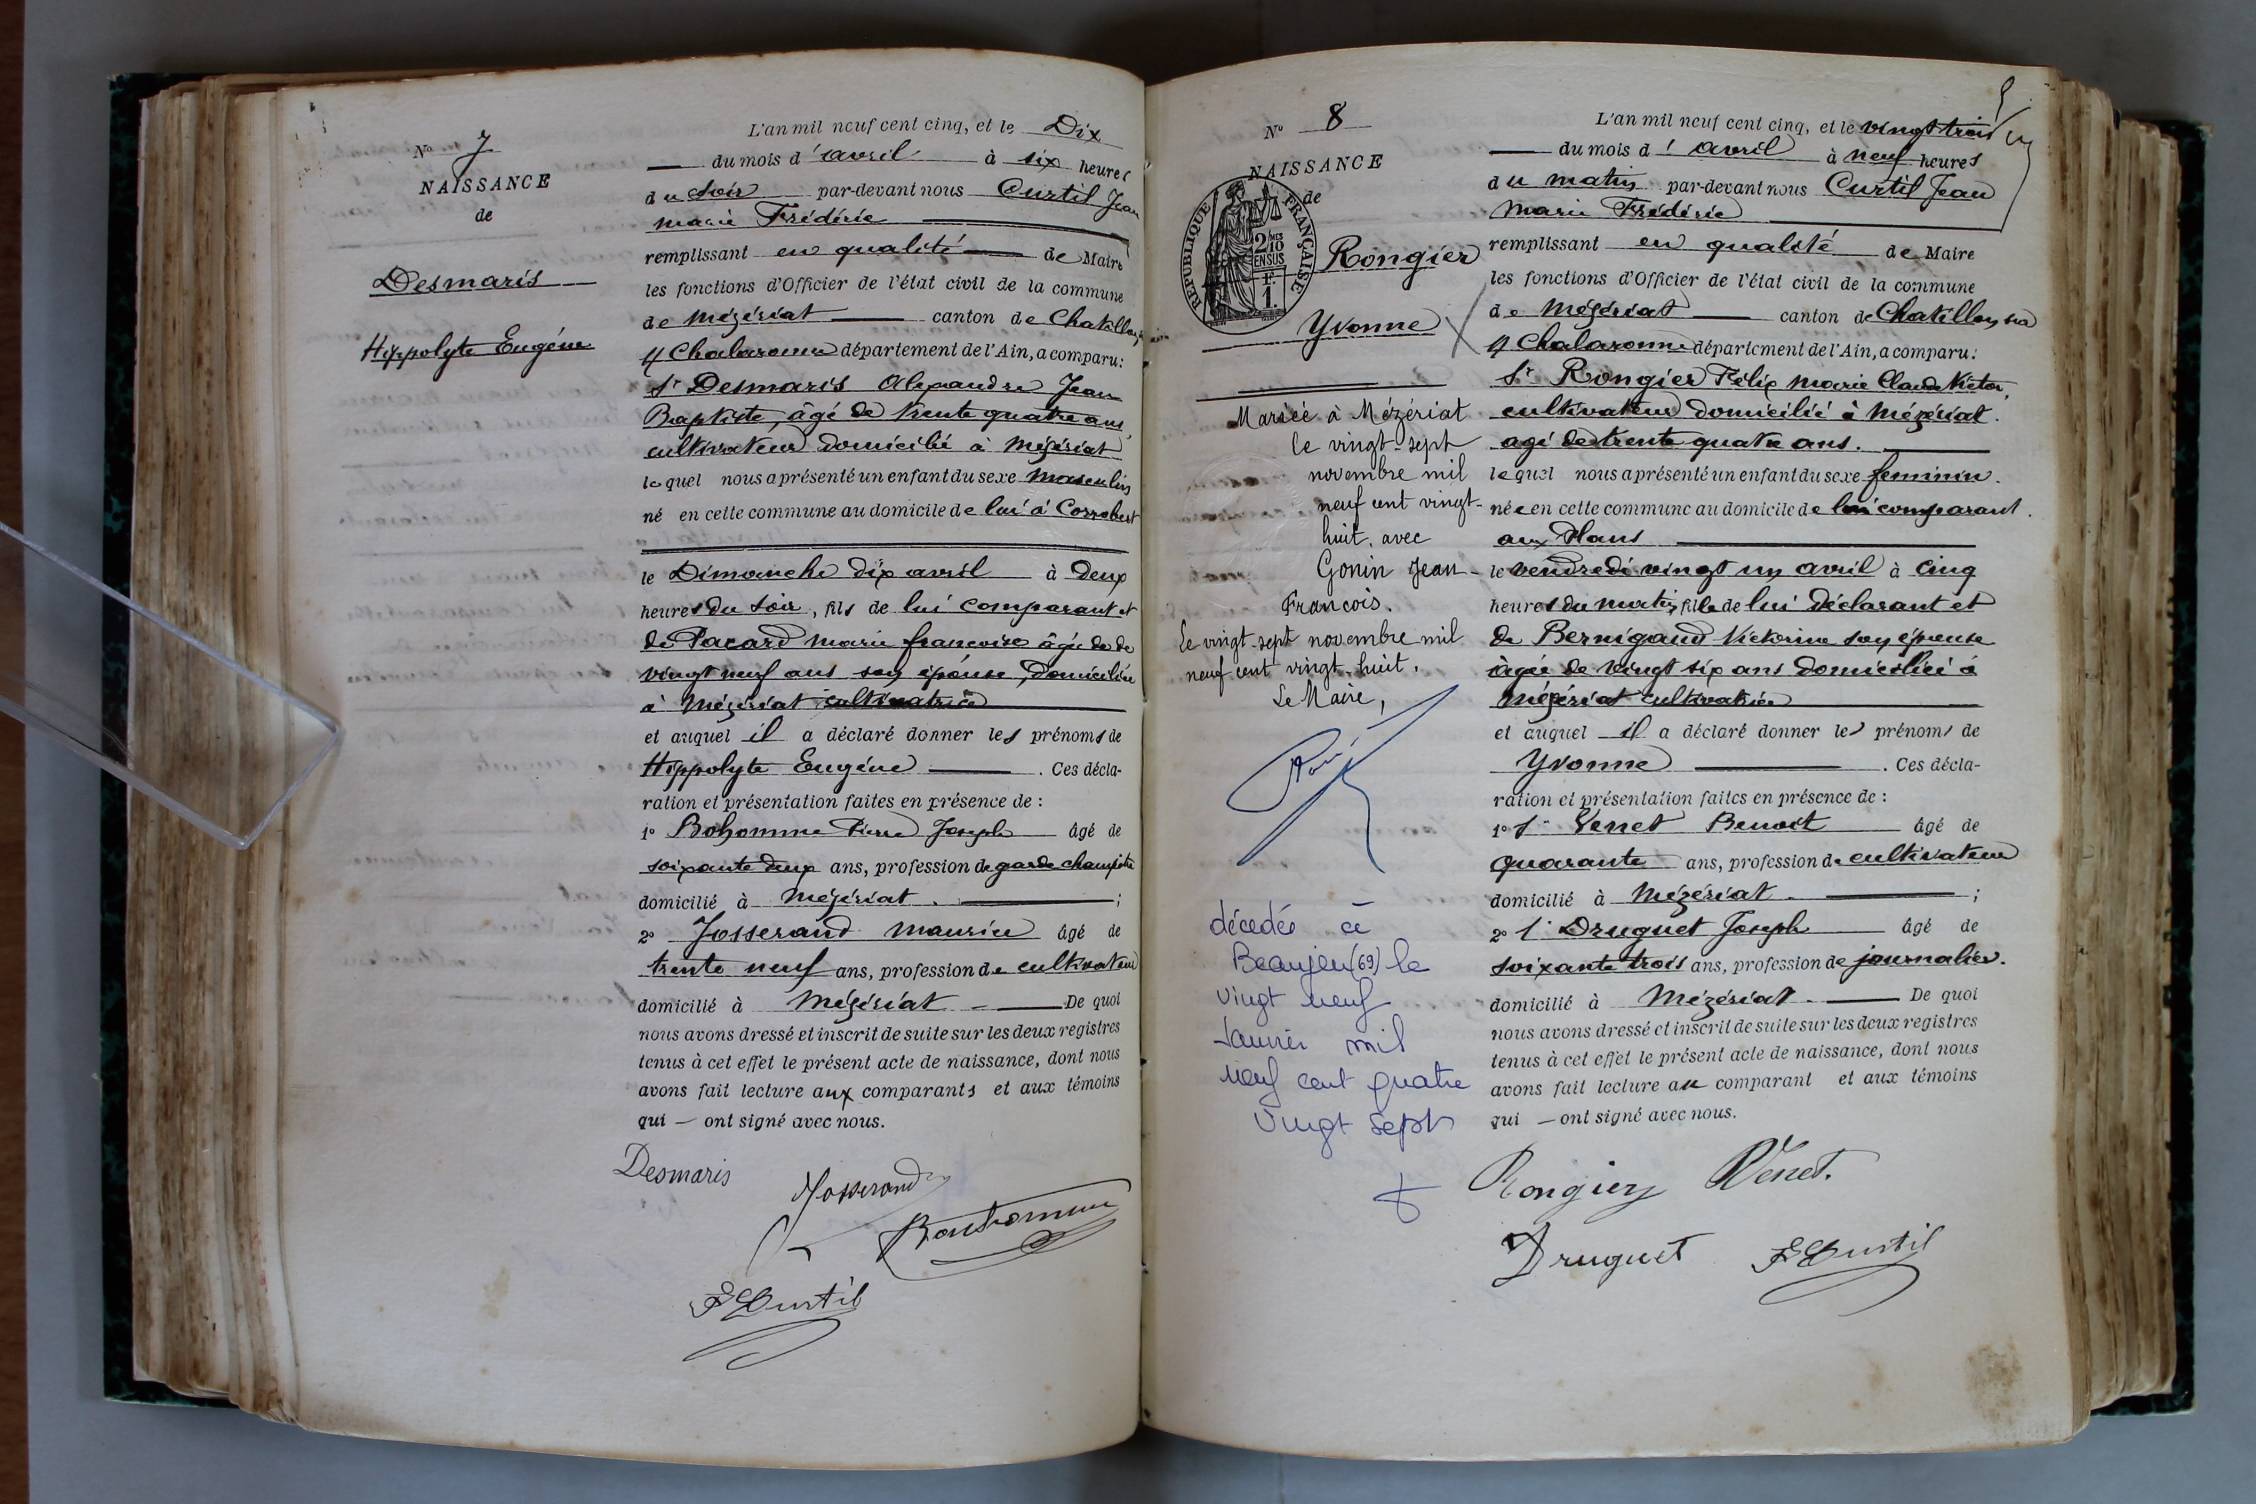 L'an mil neuf cent cinq, et le Dix
No 7
du mois d'avril à six heures
NAISSANCE
du soir par-devant nous Curtil Jean
de
marie Frédéric
remplissant en qualité de Maire
Desmaris
les fonctions d'Officier de l'état civil de la commune
de Mézériat canton de Chatillon
Hippolyte Eugène
s/ Chalaronne département de l'Ain, a comparu:
Sr Desmaris Alexandre Jean
Baptiste, âgé de trente quatre ans,
cultivateur domicilié à Mézériat
lequel nous a présenté un enfant du sexe masculin
né en cette commune au domicile de lui à Corrobert
le Dimanche dix avril à deux
heures du soir, fils de lui comparant et
de Pacard marie françoise âgée de de
vingt neuf ans son épouse, domiciliée
à Mézériat cultivatrice
et auquel il a déclaré donner les prénoms de
Hippolyte Eugène . Ces décla-
ration et présentation faites en présence de :
1o Bohomme Pierre Joseph âgé de
soixante deux ans, profession de garde champêtre
domicilié à Mézériat . ;
2o Josserand Maurice âgé de
trente neuf ans, profession de cultivateur
domicilié à Mézériat . De quoi
nous avons dressé et inscrit de suite sur les deux registres
tenus à cet effet le présent acte de naissance, dont nous
avons fait lecture aux comparants et aux témoins
qui — ont signé avec nous.
Desmaris
Josserand
Bonhomme
F Curtil
L'an mil neuf cent cinq, et le vingt trois
No 8
du mois d'avril à neuf heures
NAISSANCE
du matin par-devant nous Curtil Jean
de
marie Frédéric
RÉPUBLIQUE FRANÇAISE
2 MES
10
EN SUS
1 F.
1.
Rongier
remplissant en qualité de Maire
les fonctions d'Officier de l'état civil de la commune
Yvonne
de Mézériat canton de Chatillon sur
s/ Chalaronne département de l'Ain, a comparu:
Sr Rongier Félix marie Claude Victor,
cultivateur domicilié à Mézériat.
agé de trente quatre ans.
lequel nous a présenté un enfant du sexe feminin.
née en cette commune au domicile de lui comparant.
aux Plans
le vendredi vingt un avril à cinq
heures du matin, fille de lui déclarant et
de Bernigaud Victorine son épouse
âgée de vingt six ans domiciliée à
Mézériat cultivatrice
et auquel il a déclaré donner les prénoms de
Yvonne . Ces décla-
ration et présentation faites en présence de :
1o Sr Venet Benoit âgé de
quarante ans, profession de cultivateur
domicilié à Mézériat . ;
2o Sr Druguet Joseph âgé de
soixante trois ans, profession de journalier.
domicilié à Mézériat . De quoi
nous avons dressé et inscrit de suite sur les deux registres
tenus à cet effet le présent acte de naissance, dont nous
avons fait lecture au comparant et aux témoins
qui — ont signé avec nous.
Rongier Venet.
Druguet F Curtil
Mariée à Mézériat
le vingt-sept
novembre mil
neuf cent vingt-
huit, avec
Gonin Jean-
François.
Le vingt-sept novembre mil
neuf cent vingt-huit.
Le Maire,
décédée à
Beaujeu (69) le
vingt neuf
Janvier mil
neuf cent quatre
vingt sept